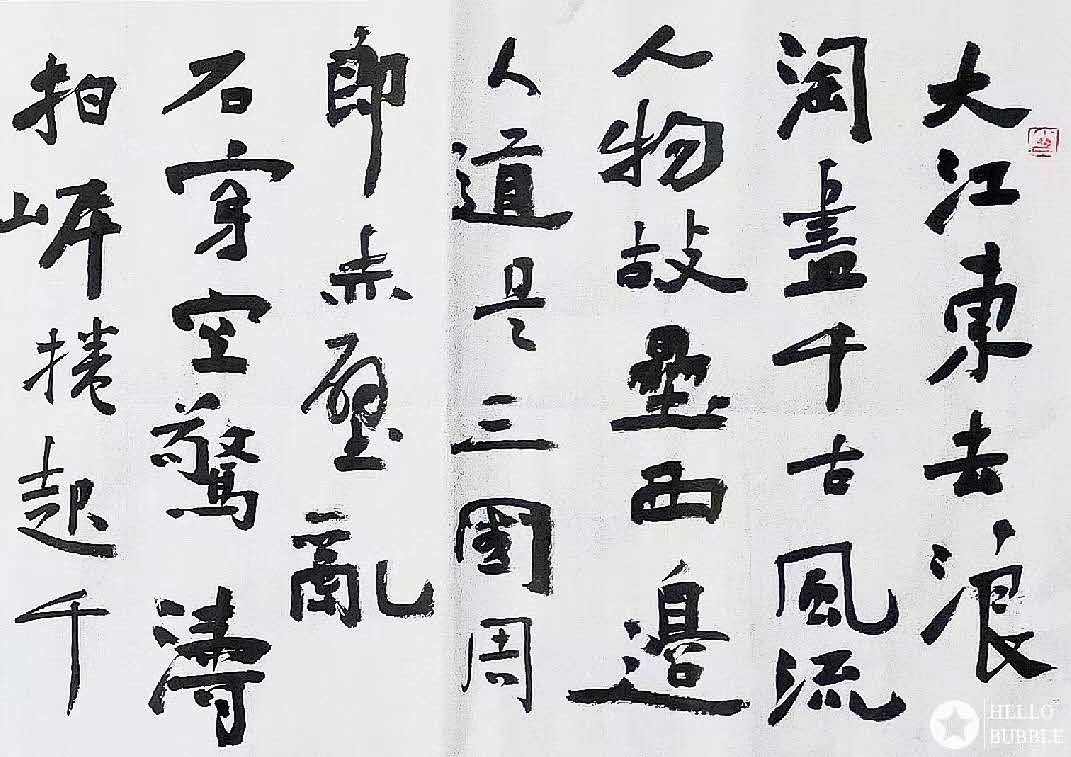 大江東去浪
淘盡千古風流
人物故壘西邊
人道是三國周
郎赤壁亂
石穿空驚濤
拍岸捲起千
HELLO
BUBBLE